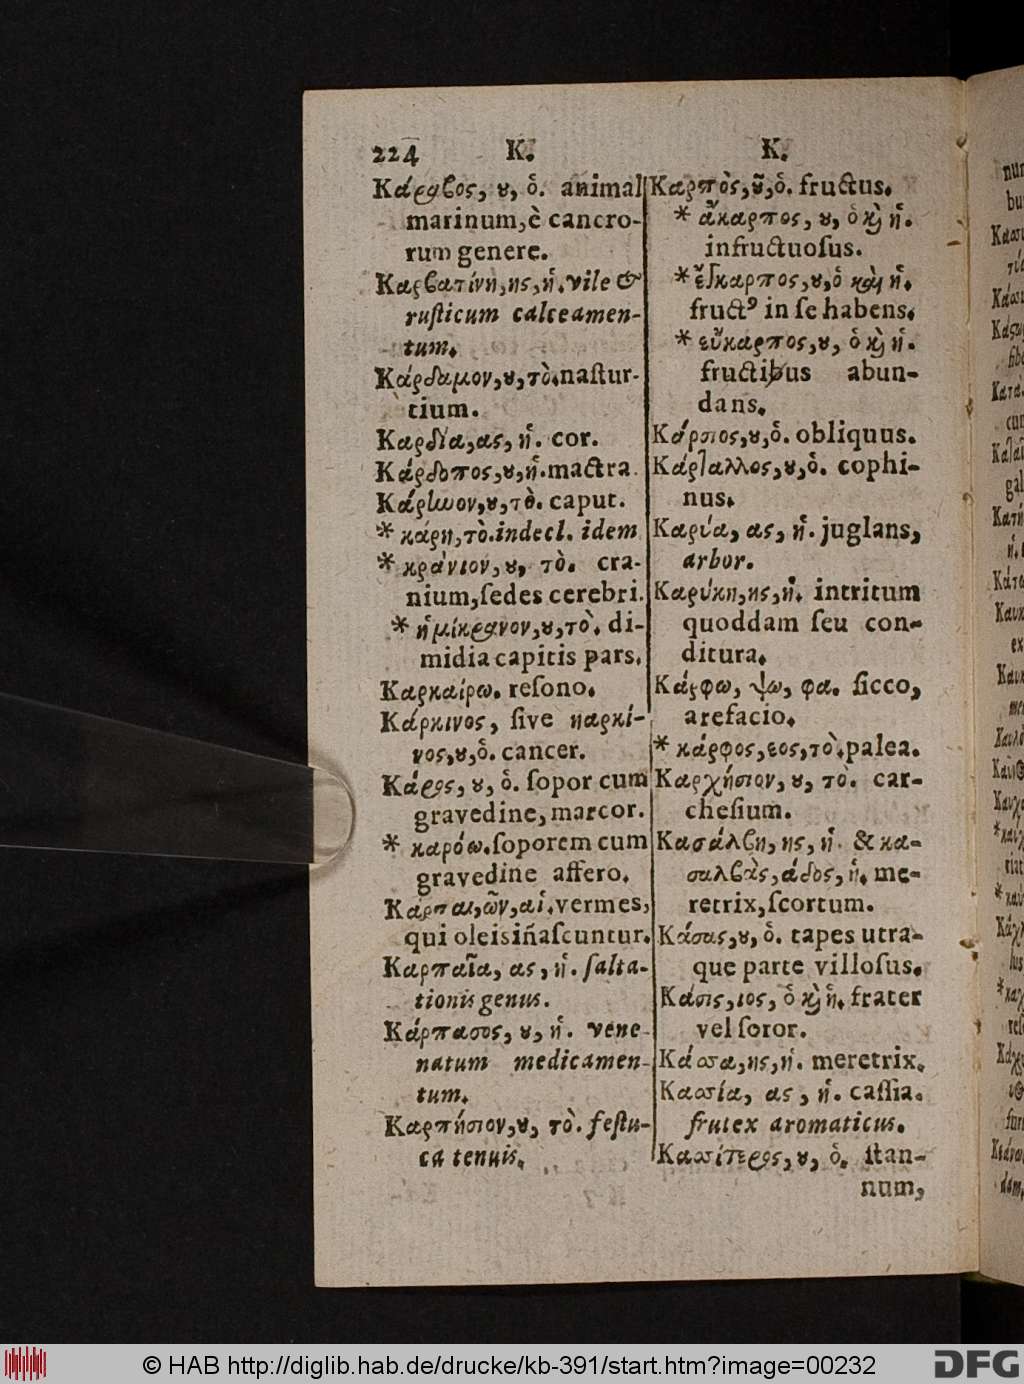 224 K. K.
Κάραβος, ου, ὁ. animal
marinum, è cancro-
rum genere.
Καρβατίνη, ης, ἡ. vile &
rusticum calceamen-
tum.
Κάρδαμον, ου, τὸ. nastur-
tium.
Καρδία, ας, ἡ. cor.
Κάρδοπος, ου, ἡ. mactra
Κάρηνον, ου, τὸ. caput.
* κάρη, τὸ. indecl. idem
* κράνιον, ου, τὸ. cra-
nium, sedes cerebri.
* ἡμίκρανον, ου, τὸ. di-
midia capitis pars.
Καρκαίρω. resono.
Κάρκινος, sive καρκί-
νος, ου, ὁ. cancer.
Κάρος, ου, ὁ. sopor cum
gravedine, marcor.
* καρόω. soporem cum
gravedine affero.
Κάρπαι, ῶν, αἱ. vermes,
qui oleis iñascuntur.
Καρπαῖα, ας, ἡ. salta-
tionis genus.
Κάρπασος, ου, ἡ. vene-
natum medicamen-
tum.
Καρπήσιον, ου, τὸ. festu-
ca tenuis.
Καρπὸς, οῦ, ὁ. fructus.
* ἄκαρπος, ου, ὁ καὶ ἡ.
infructuosus.
* ἔγκαρπος, ου, ὁ καὶ ἡ.
fructꝰ in se habens.
* εὔκαρπος, ου, ὁ καὶ ἡ.
fructibus abun-
dans.
Κάρσιος, ου, ὁ. obliquus.
Κάρταλλος, ου, ὁ. cophi-
nus.
Καρύα, ας, ἡ. juglans,
arbor.
Καρύκη, ης, ἡ. intritum
quoddam seu con-
ditura.
Κάρφω, ψω, φα. sicco,
arefacio.
* κάρφος, εος, τὸ. palea.
Καρχήσιον, ου, τὸ. car-
chesium.
Κασάλβη, ης, ἡ. & κα-
σαλβὰς, άδος, ἡ. me-
retrix, scortum.
Κάσας, ου, ὁ. tapes utra-
que parte villosus.
Κάσις, ιος, ὁ καὶ ἡ. frater
vel soror.
Κάσσα, ης, ἡ. meretrix.
Κασσία, ας, ἡ. cassia.
frutex aromaticus.
Κασσίτερος, ου, ὁ. stan-
num,
© HAB http://diglib.hab.de/drucke/kb-391/start.htm?image=00232
DFG